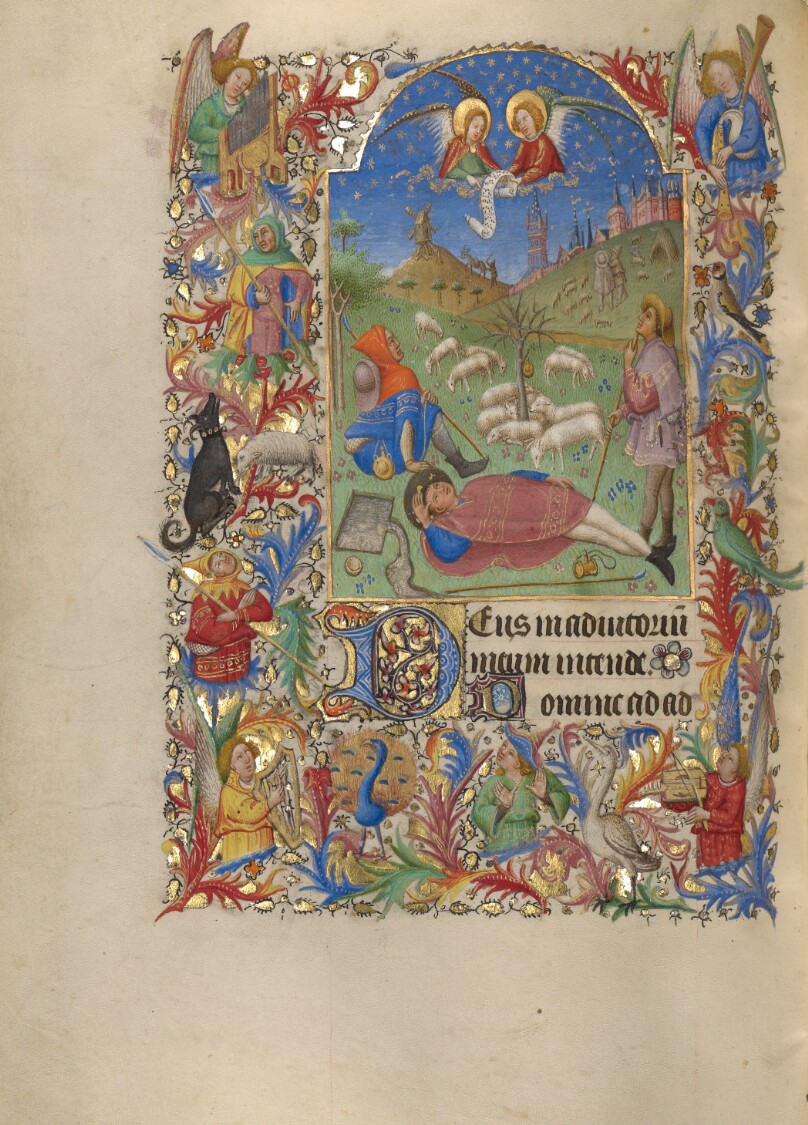 Deus in adiutoriũ
meum intende.
Domine ad ad